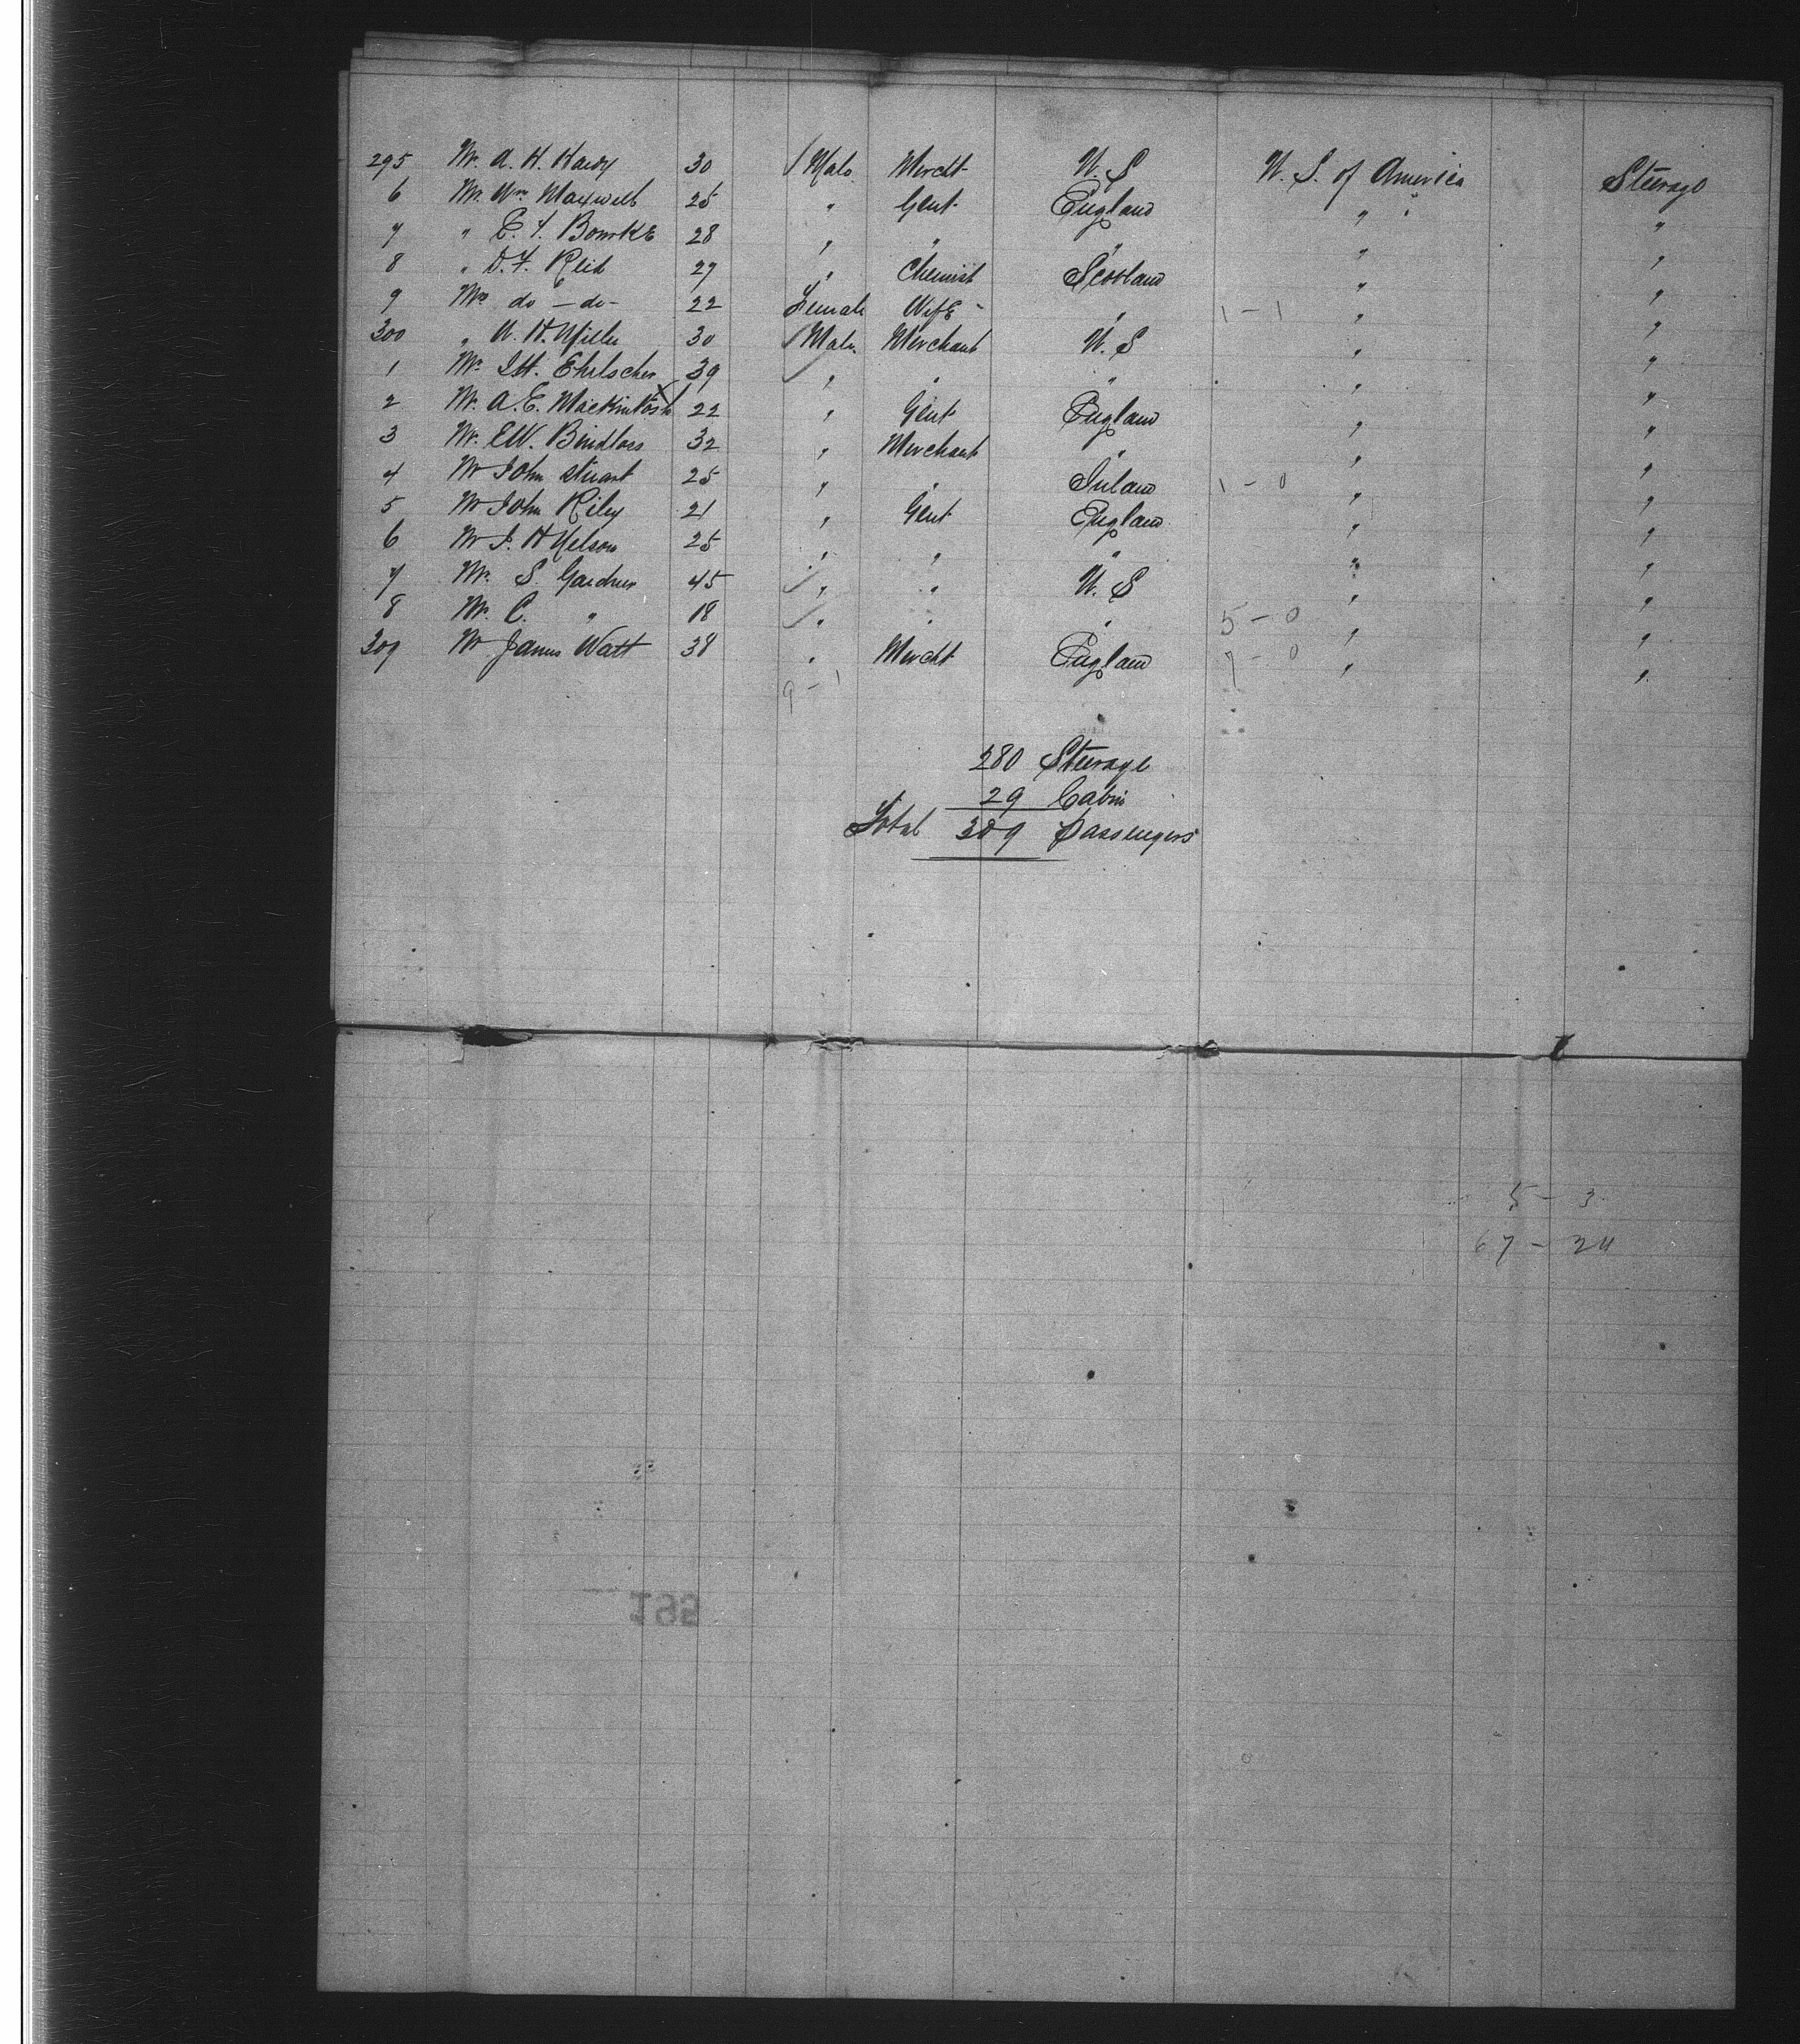 295 Mr. A. H. Hardy 30 Male Mercht U. S U. S. of America Steerage
6 Mr. Wm. Maxwell 25 " Gent. England " " "
7 " E. F. Bourke 28 " " " " "
8 " D. F. Reid 27 " Chemist Scotland " "
9 Mrs do - do - 22 Female Wife " 1 - 1 " "
300 " A. H. Miller 30 Male Merchant U. S " "
1 Mr. 39 " " " " "
2 Mr. A. E. Mackintosh 22 " Gent England " "
3 Mr. E.W. Bindloss 32 " Merchant " " "
4 Mr John Stuart 25 " " Ireland 1 - 0 " "
5 Mr John Riley 21 " Gent England " "
6 Mr J. H Nelson 25 " " " " "
7 Mr. S. Gardner 45 " " U. S " "
8 Mr. C. " 18 " " " 5 - 0 " "
309 Mr James Watt 38 " Mercht England 7 - 0 " "
9 - 1
280 Steerage
29 Cabin
Total 309 Passengers
5 - 3
67 - 24